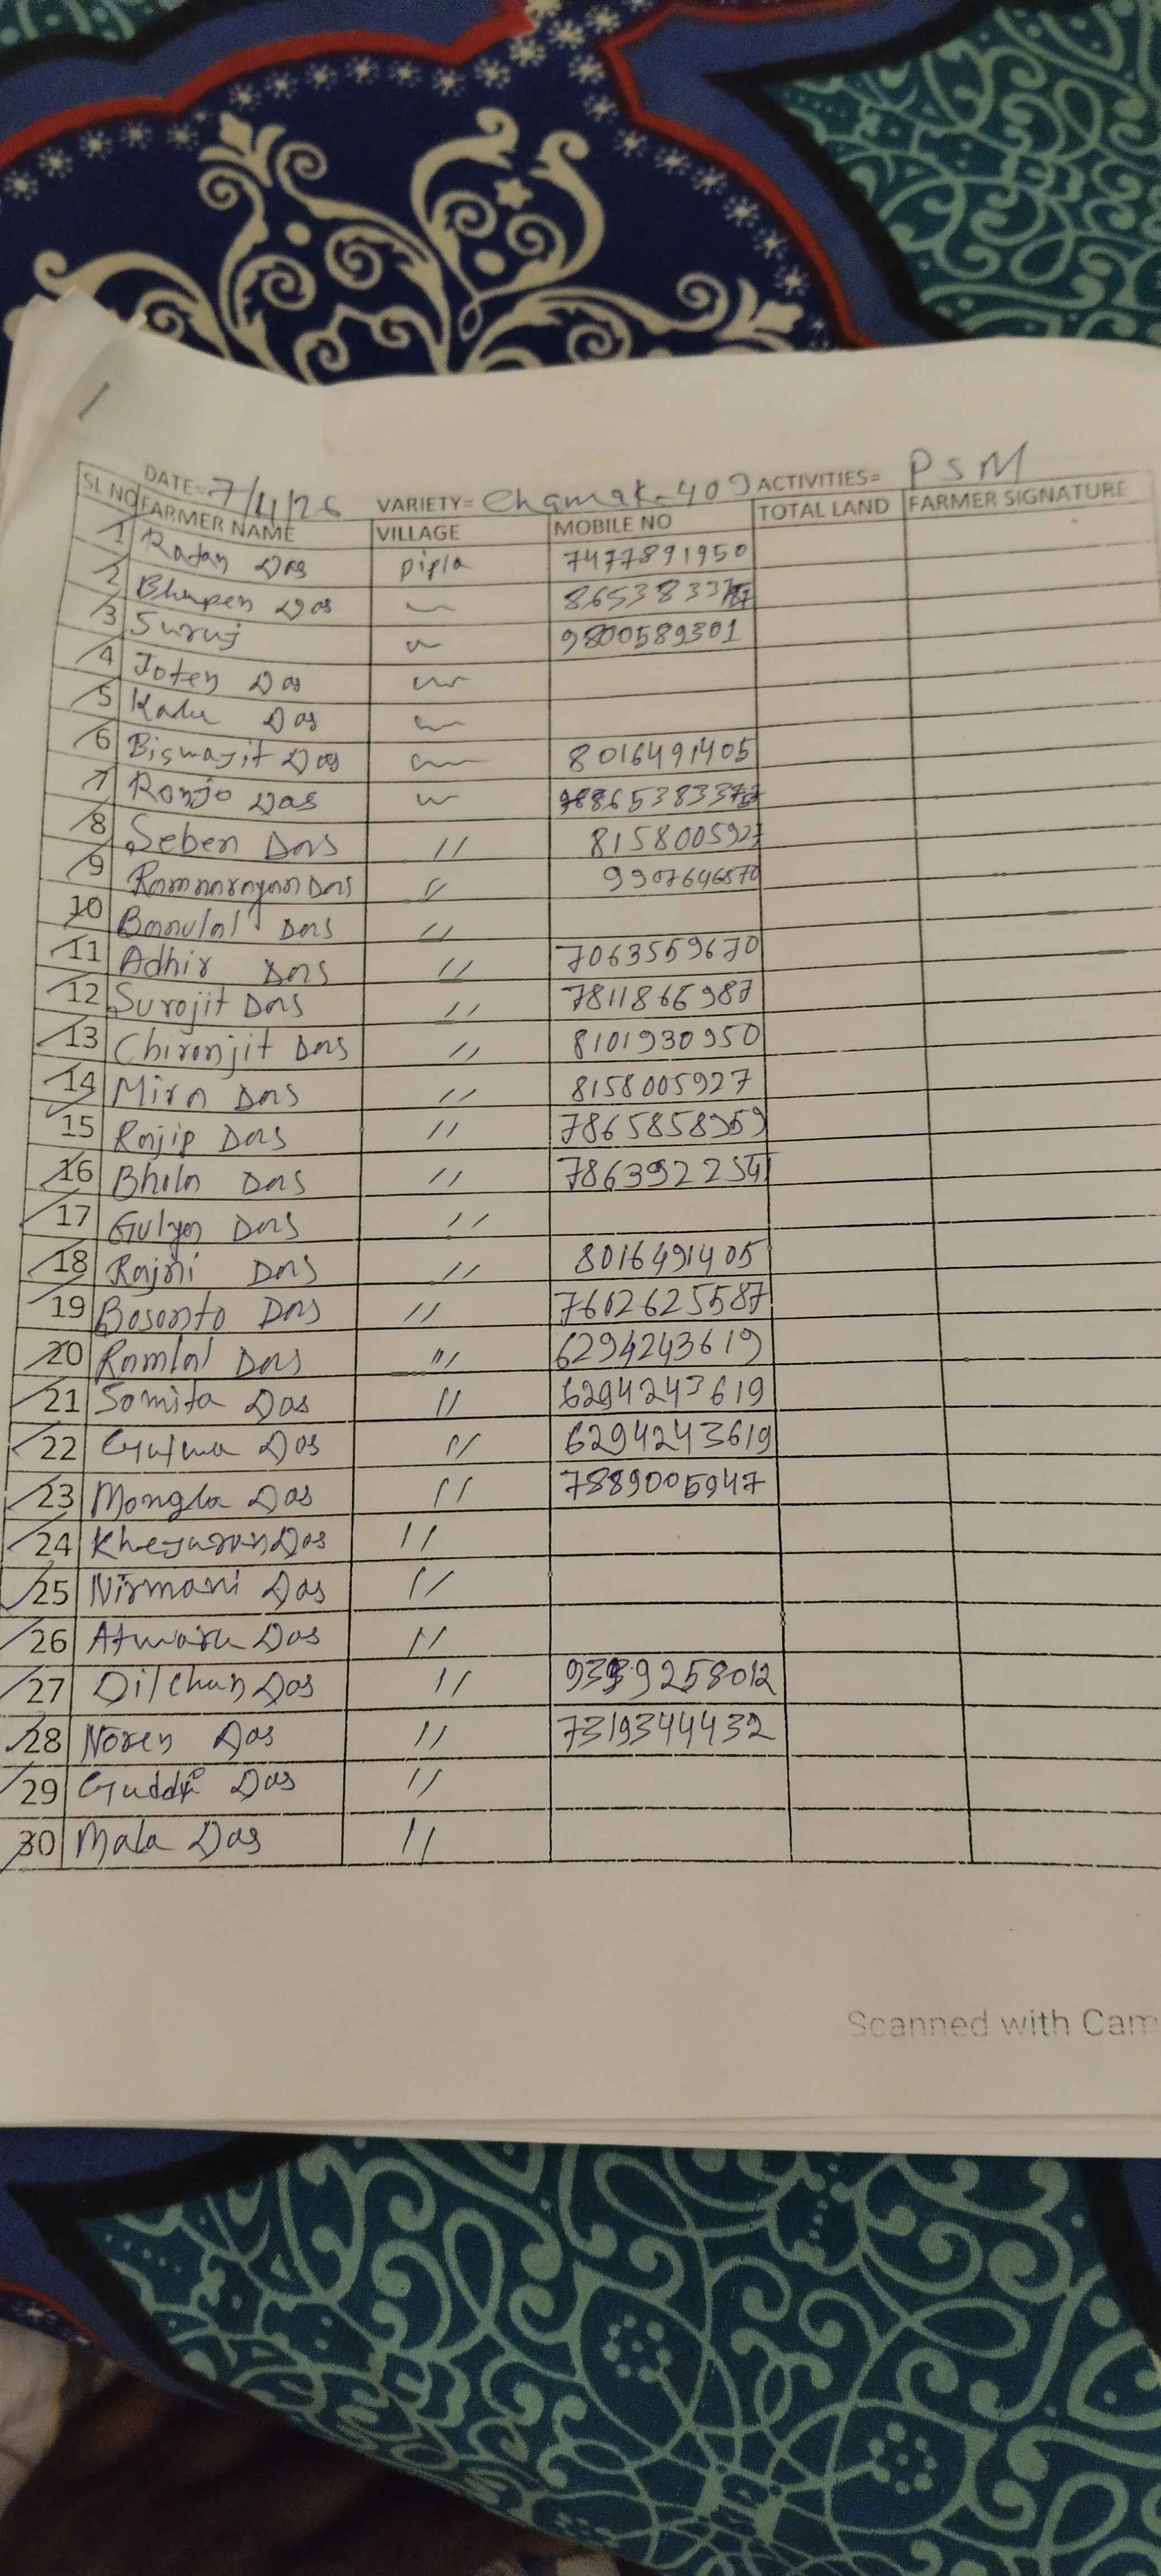 DATE= 7/4/26 VARIETY= Chamak-409 ACTIVITIES= PSM
SL NO FARMER NAME VILLAGE MOBILE NO TOTAL LAND FARMER SIGNATURE
1 Ratan Das pipla 7477891950
2 Bhupen Das
3 Suruj 9800589301
4 Joten Das
5 Kalu Das
6 Biswajit Das 8016491405
7 Ronjo Das
8 Seben Das // 8158005927
9 Ramnarayan Das // 9907646570
10 Banulal Das //
11 Adhir Das // 7063559670
12 Surojit Das // 7811866987
13 Chironjit Das // 8101930950
14 Mira Das // 8158005927
15 Rajip Das // 7865858959
16 Bhola Das //
17 Das //
18 Rajni Das // 8016491405
19 Bosonto Das // 7602625587
20 Ramlal Das // 6294243619
21 Somita Das // 6294243619
22 Das // 6294243619
23 Mongla Das // 7889005947
24 Das //
25 Nirmani Das //
26 Atwaru Das //
27 Dilchan Das //
28 Noren Das // 7319344432
29 Guddi Das //
30 Mala Das //
Scanned with Cam